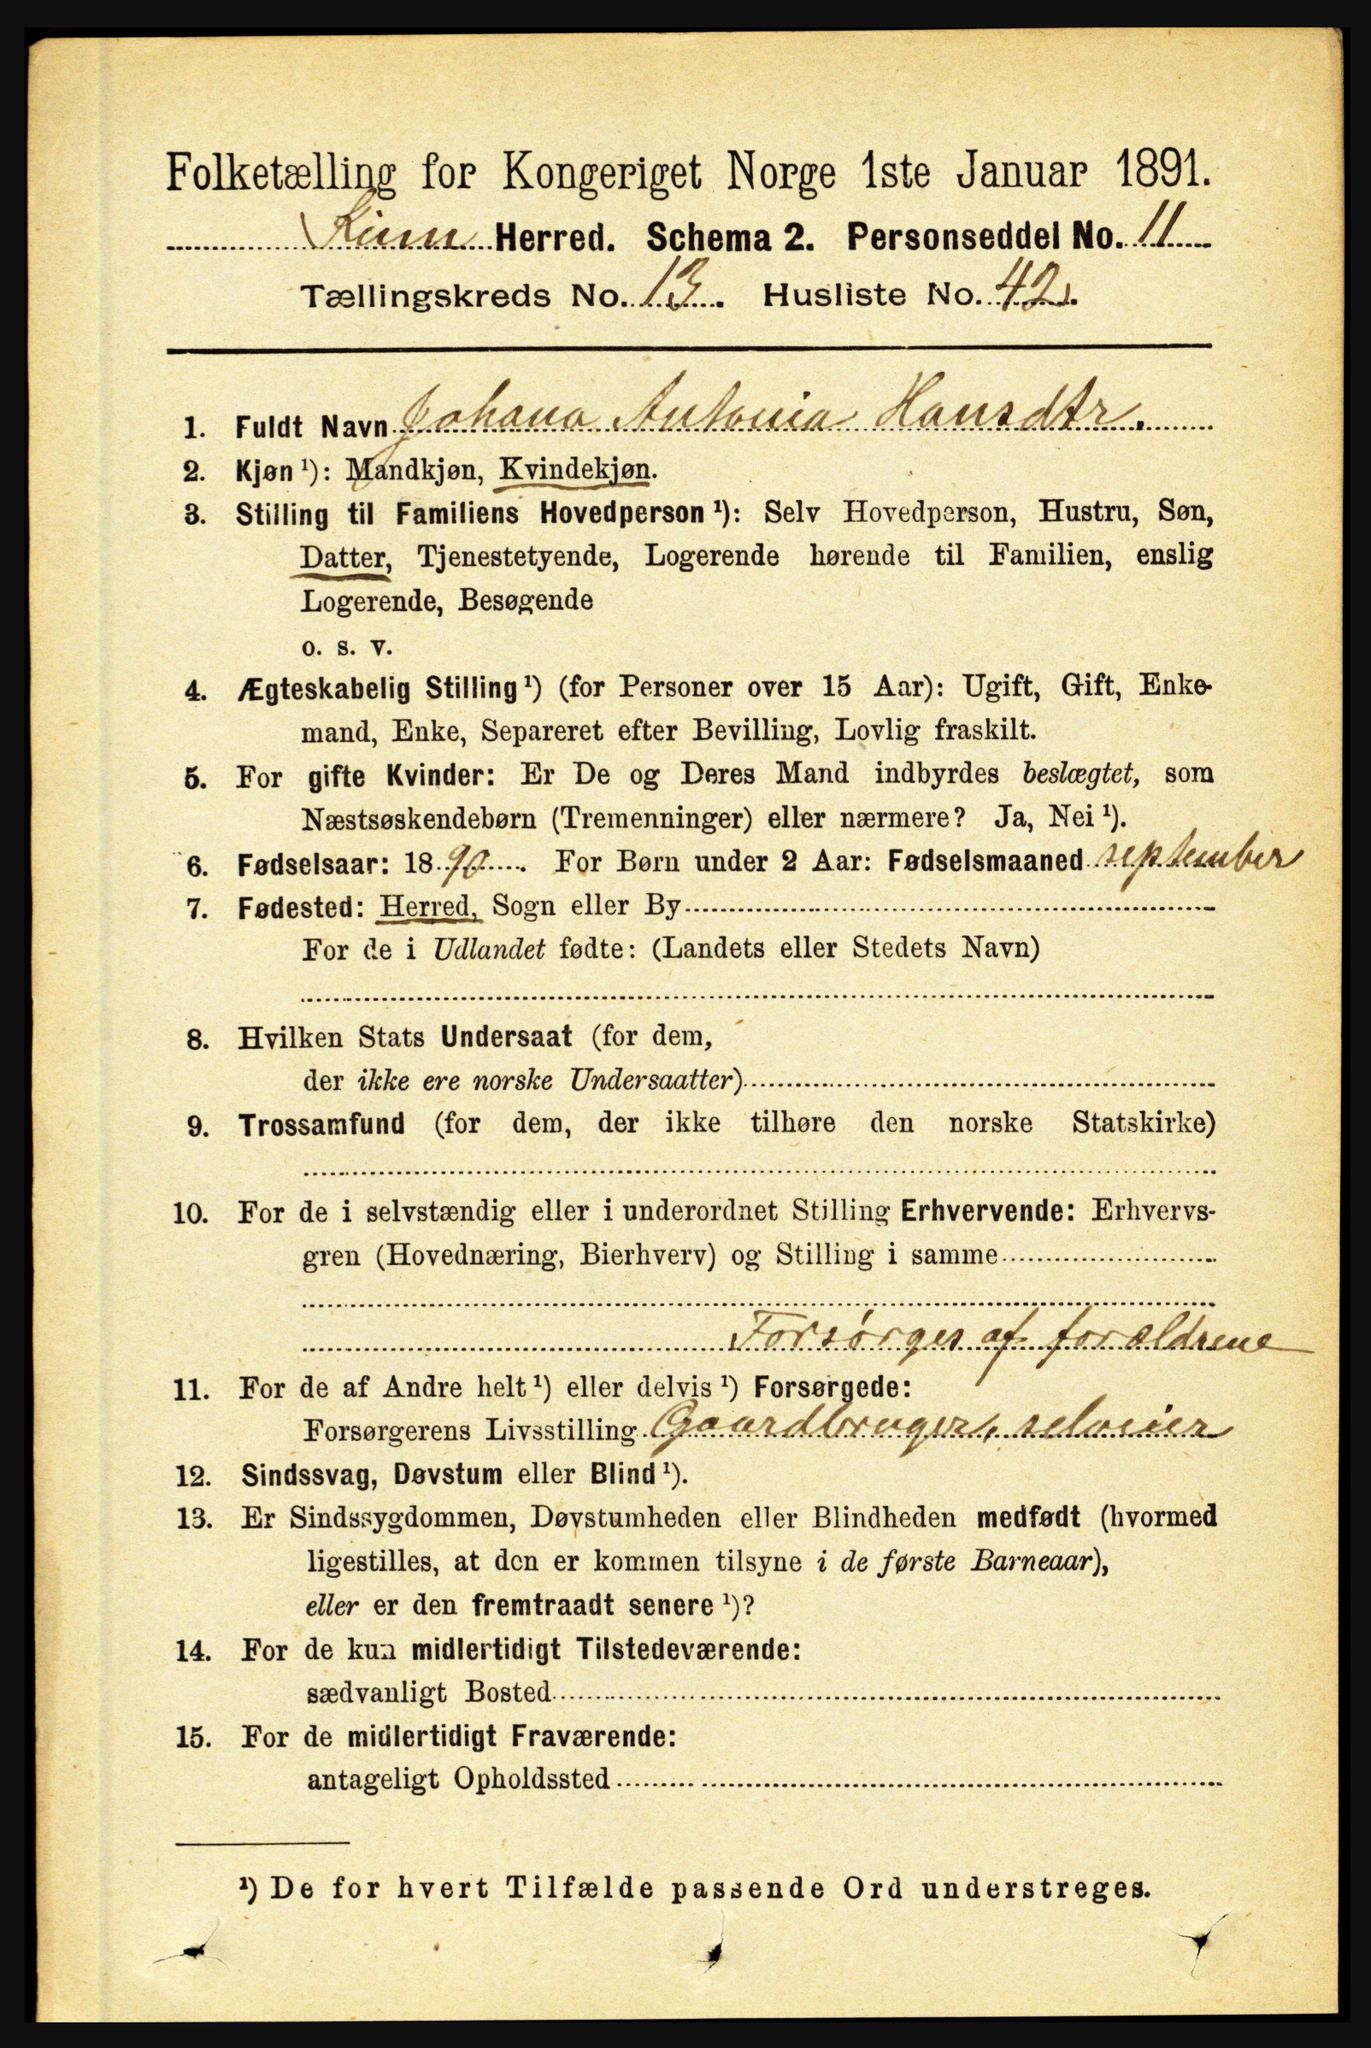 Folketælling for Kongeriget Norge 1ste Januar 1891.
Kinn Herred. Schema 2. Personseddel No. 11
Tællingskreds No. 13. Husliste No. 42.
1. Fuldt Navn Johana Antonia Hansdtr.
2. Kjøn ¹): Mandkjøn, Kvindekjøn.
3. Stilling til Familiens Hovedperson ¹): Selv Hovedperson, Hustru, Søn,
Datter, Tjenestetyende, Logerende hørende til Familien, enslig
Logerende, Besøgende
o. s. v.
4. Ægteskabelig Stilling ¹) (for Personer over 15 Aar): Ugift, Gift, Enke-
mand, Enke, Separeret efter Bevilling, Lovlig fraskilt.
5. For gifte Kvinder: Er De og Deres Mand indbyrdes beslægtet, som
Næstsøskendebørn (Tremenninger) eller nærmere? Ja, Nei ¹).
6. Fødselsaar: 1890. For Børn under 2 Aar: Fødselsmaaned september
7. Fødested: Herred, Sogn eller By
For de i Udlandet fødte: (Landets eller Stedets Navn)
8. Hvilken Stats Undersaat (for dem,
der ikke ere norske Undersaatter)
9. Trossamfund (for dem, der ikke tilhøre den norske Statskirke)
10. For de i selvstændig eller i underordnet Stilling Erhvervende: Erhvervs-
gren (Hovednæring, Bierhverv) og Stilling i samme
Forsørges af forældrene
11. For de af Andre helt ¹) eller delvis ¹) Forsørgede:
Forsørgerens Livsstilling Gaardbruger, selveier
12. Sindssvag, Døvstum eller Blind ¹).
13. Er Sindssygdommen, Døvstumheden eller Blindheden medfødt (hvormed
ligestilles, at den er kommen tilsyne i de første Barneaar),
eller er den fremtraadt senere ¹)?
14. For de kun midlertidigt Tilstedeværende:
sædvanligt Bosted
15. For de midlertidigt Fraværende:
antageligt Opholdssted
¹) De for hvert Tilfælde passende Ord understreges.